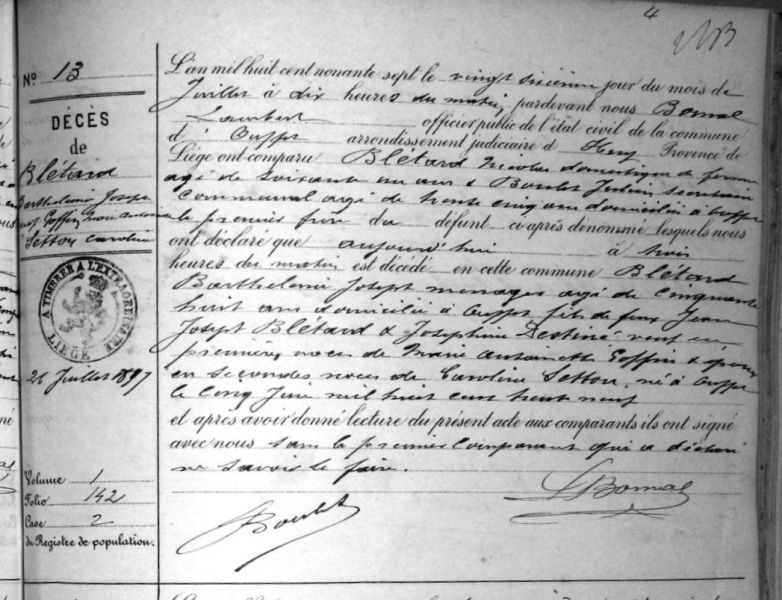 4
N° 13
DÉCÈS
de
Blétard
Barthelemi Joseph
veuf Goffin Marie Antoinette
Setton Caroline
A TIMBRER A L'EXTRAORDINAIRE
LIÉGE
26 Juillet 1897
Volume 1
Folio 142
Case 2
du Registre de population.
L'an mil huit cent nonante sept le vingt sixième jour du mois de
Juillet à dix heures du matin, pardevant nous Bomal
Lambert officier public de l'état civil de la commune
d' Ouffet arrondissement judiciaire d Huy Province de
Liége ont comparu Blétard Nicolas domestique de ferme
agé de soixante un ans & Boulet Justin secrétaire
communal agé de trente cinq ans domiciliés à Ouffet
le premier frère du défunt ci-après dénommé lesquels nous
ont déclaré que aujourd'hui à trois
heures du matin est décédé en cette commune Blétard
Barthelemi Joseph menager agé de cinquante
huit ans domicilié à Ouffet fils de feux Jean
Joseph Blétard & Josephine Destiné veuf en
premières noces de Marie Antoinette Goffin & époux
en secondes noces de Caroline Setton, né à Ouffet
le cinq Juin mil huit cent trente neuf
et après avoir donné lecture du présent acte aux comparants ils ont signé
avec nous sauf le premier comparant qui a déclaré
ne savoir le faire.
L Bomal
J Boulet